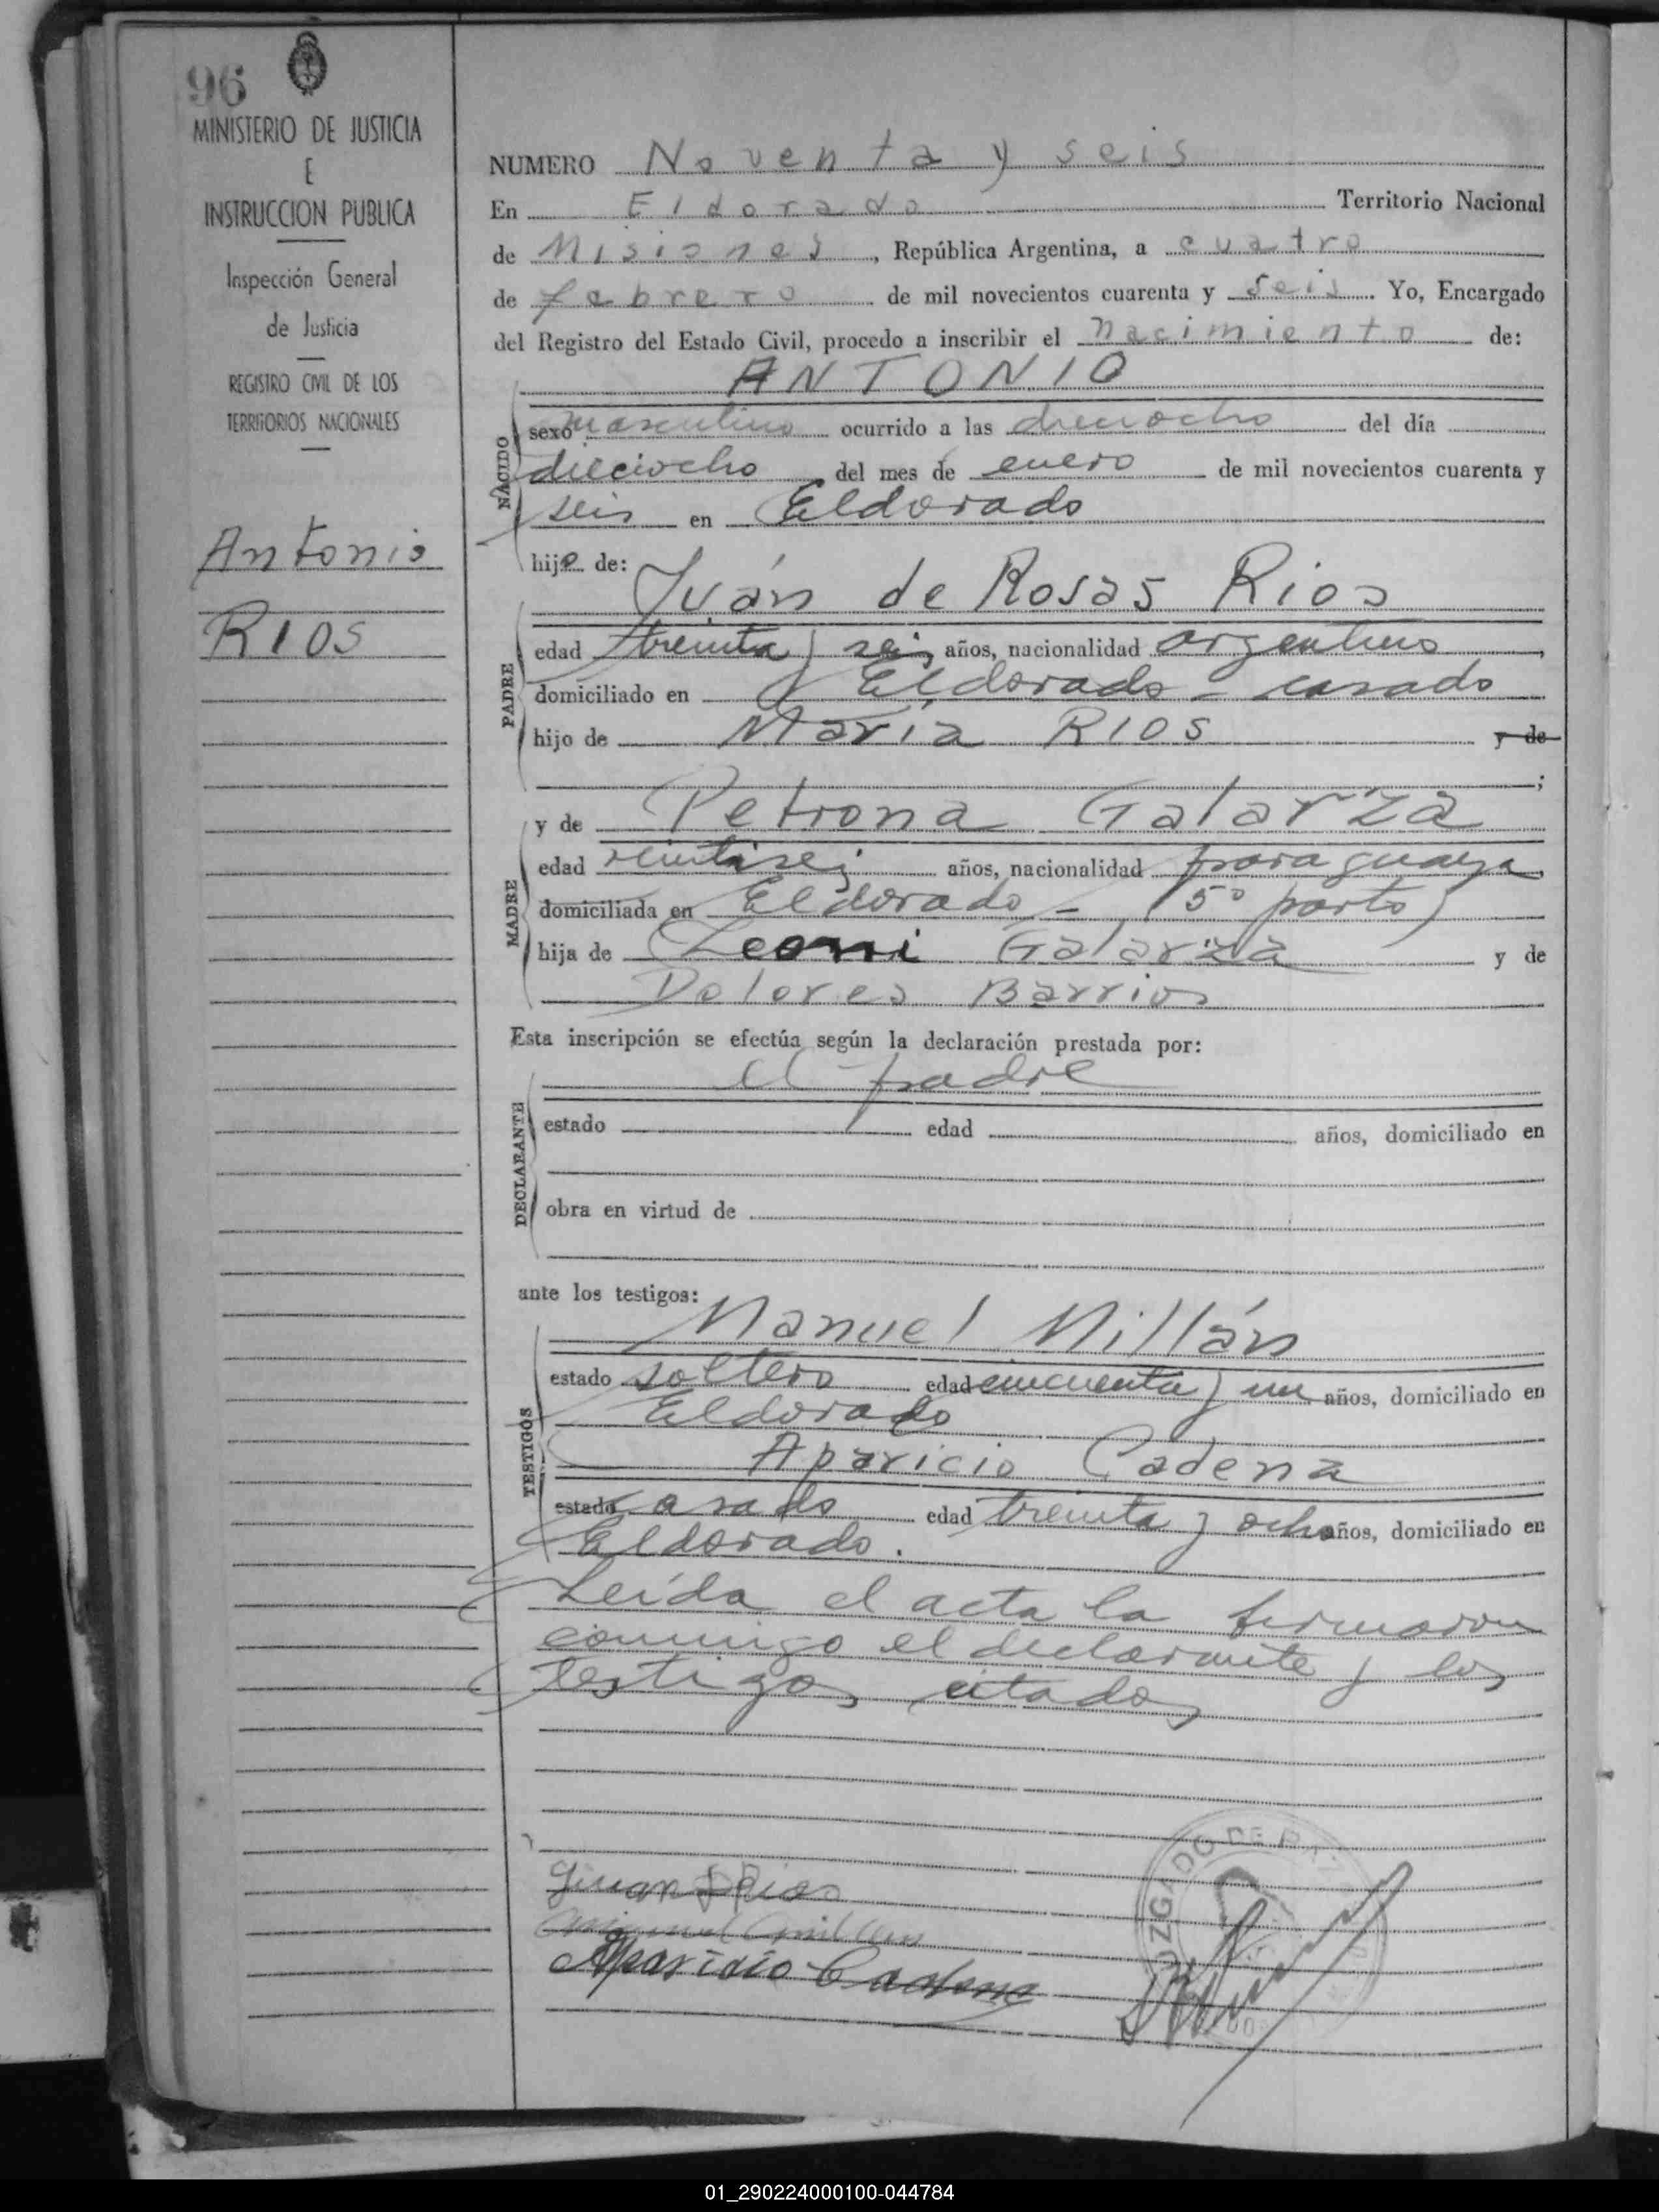 96
MINISTERIO DE JUSTICIA
E
INSTRUCCION PUBLICA
Inspección General
de Justicia
REGISTRO CIVIL DE LOS
TERRITORIOS NACIONALES
Antonio
RIOS
NUMERO Noventa y seis
En Eldorado Territorio Nacional
de Misiones, República Argentina, a cuatro
de febrero de mil novecientos cuarenta y seis. Yo, Encargado
del Registro del Estado Civil, procedo a inscribir el nacimiento de:
ANTONIO
NACIDO
sexo masculino ocurrido a las dieciocho del día
dieciocho del mes de enero de mil novecientos cuarenta y
seis en Eldorado
hijo de:
Juán de Rosas Rios
PADRE
edad treinta y seis años, nacionalidad argentino,
domiciliado en Eldorado - casado
hijo de María RIOS y de
;
y de Petrona Galarza
MADRE
edad veintiseis años, nacionalidad paraguaya,
domiciliada en Eldorado - (5º parto)
hija de Leoni Galarza y de
Dolores Barrios
Esta inscripción se efectúa según la declaración prestada por:
el padre
DECLARANTE
estado edad años, domiciliado en
obra en virtud de
ante los testigos:
Manuel Millán
TESTIGOS
estado soltero edad cincuenta y un años, domiciliado en
Eldorado
Aparicio Cadena
estado casado edad treinta y ocho años, domiciliado en
Eldorado.
Leída el acta la firmaron
conmigo el declarante y los
testigos citados
Juan Rios
Aparicio Cadena
JUZGADO DE
01_290224000100-044784